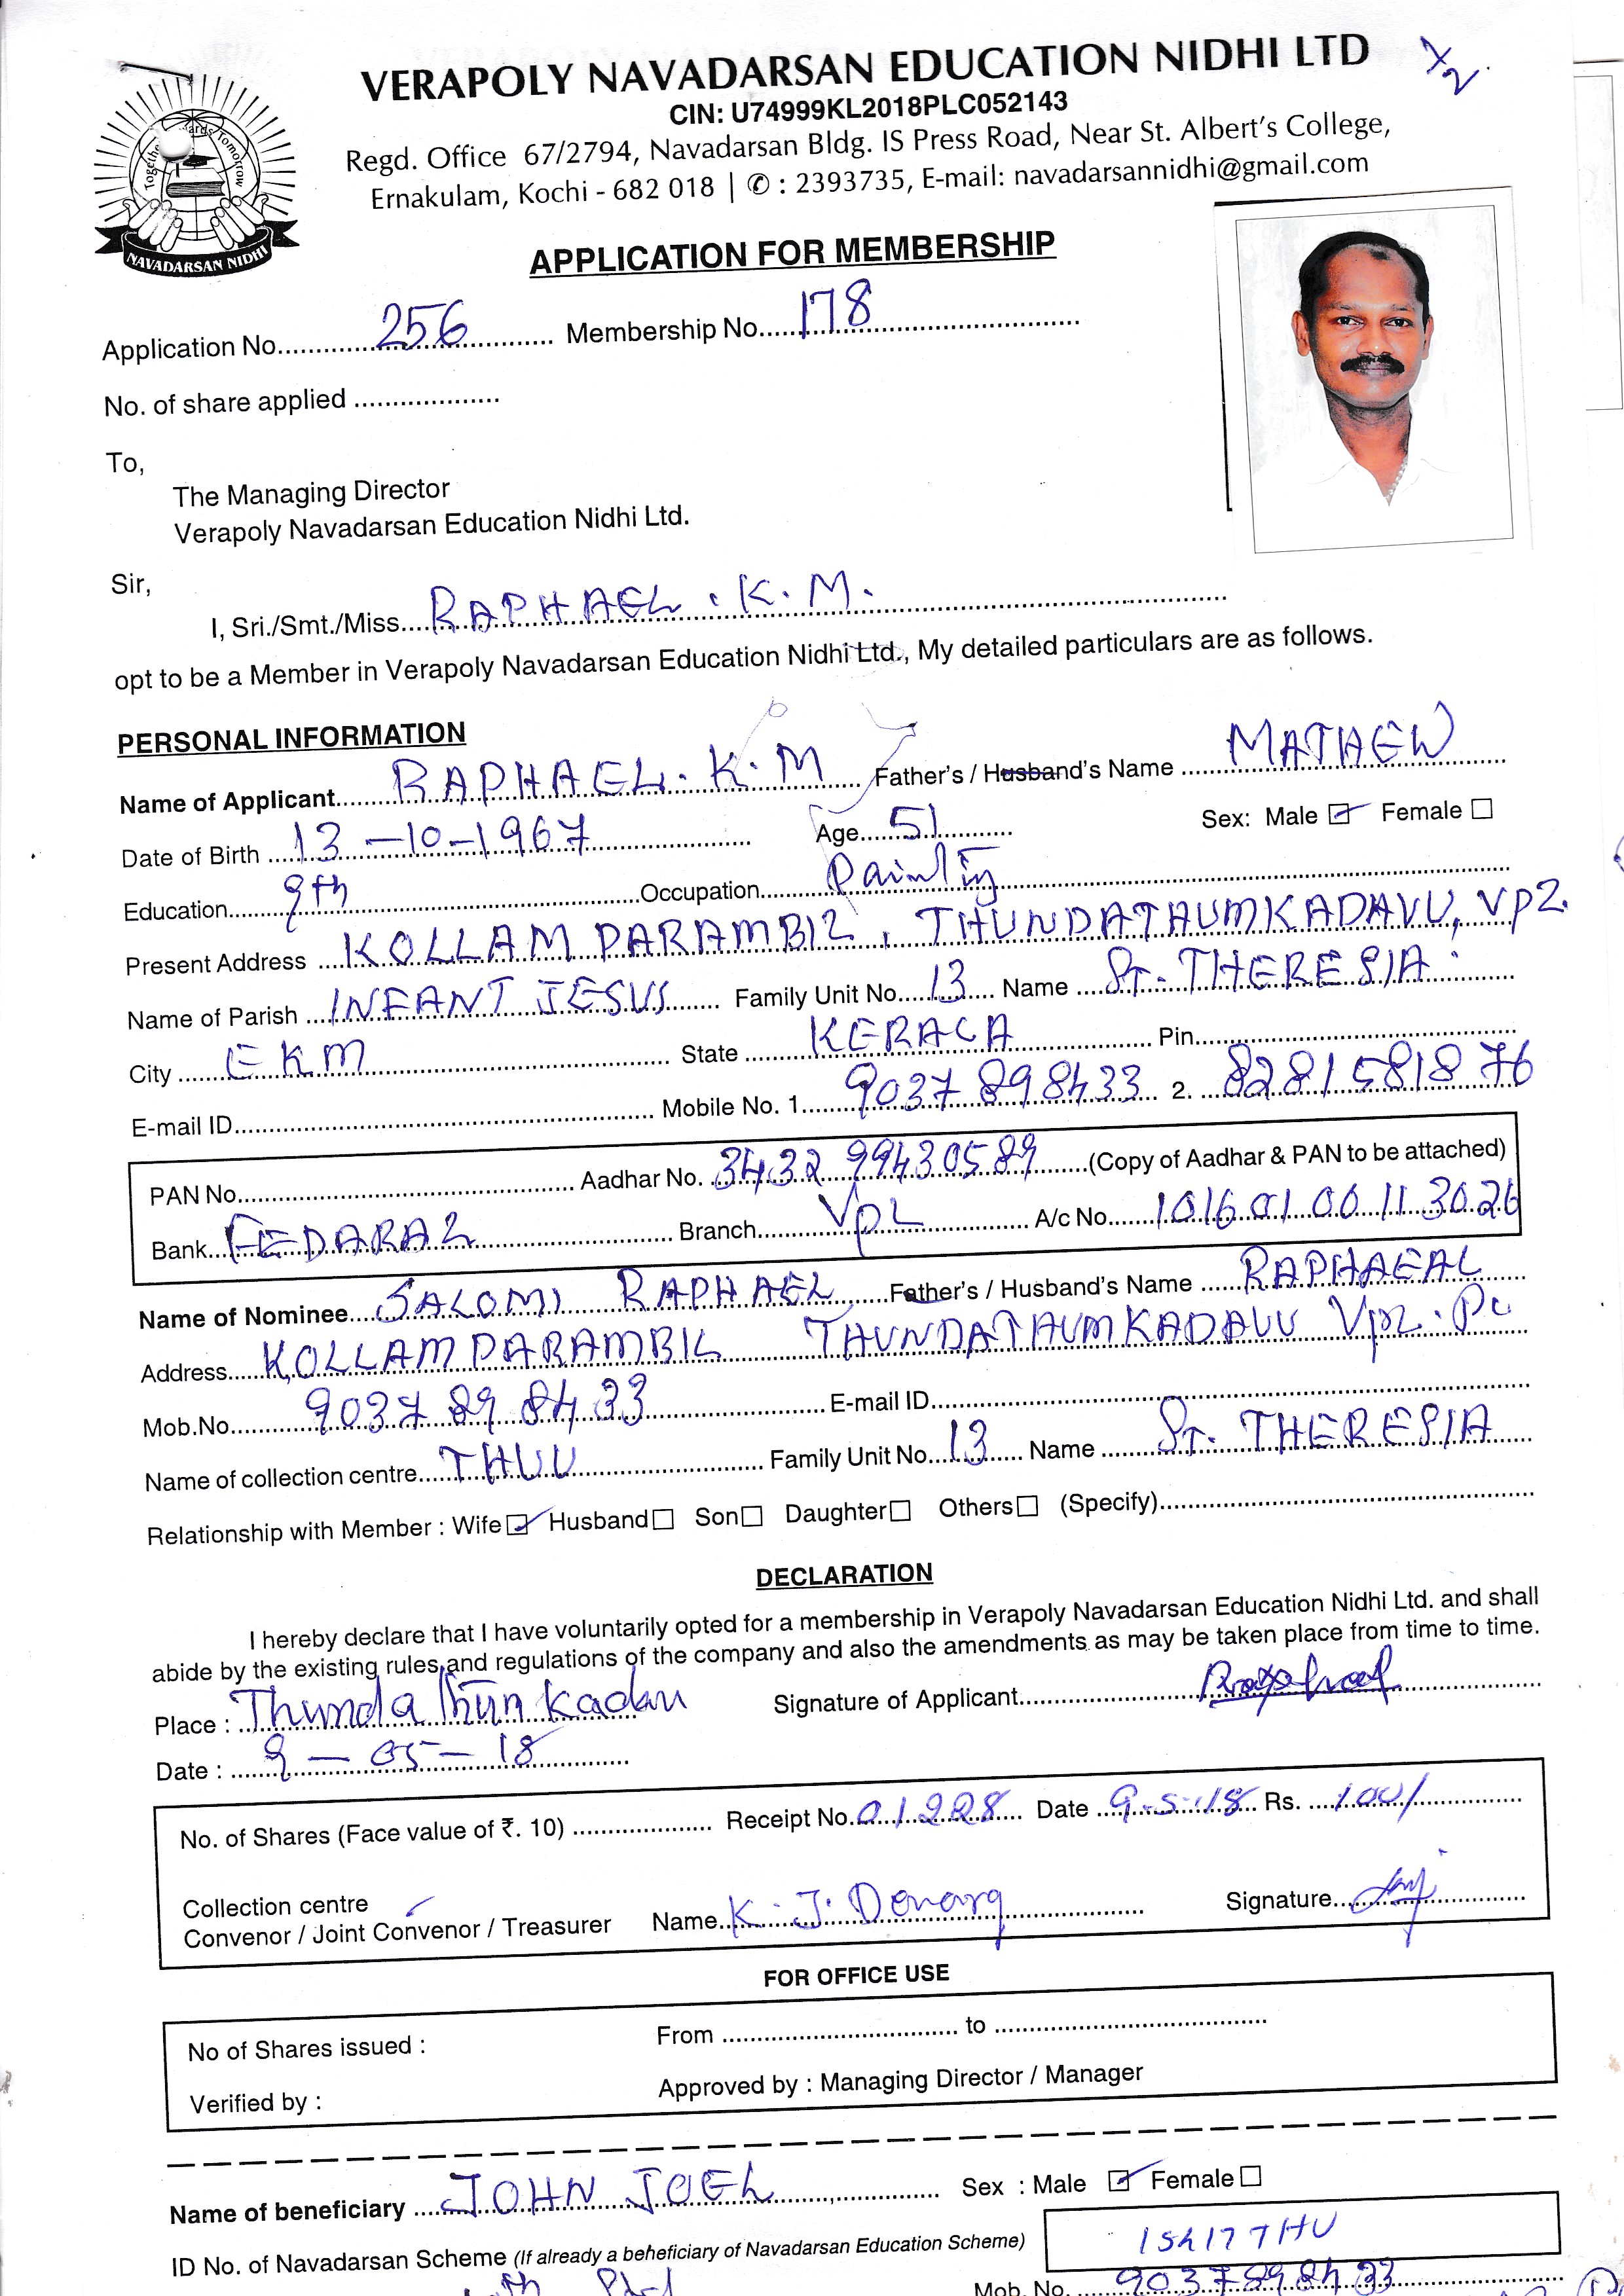 VERAPOLY NAVADARSAN EDUCATION NIDHI LTD
CIN: U74999KL2018PLC052143
Regd. Office 67/2794, Navadarsan Bldg. IS Press Road, Near St. Albert's College,
Ernakulam, Kochi - 682 018 | ✆ : 2393735, E-mail: navadarsannidhi@gmail.com
NAVADARSAN NIDHI
APPLICATION FOR MEMBERSHIP
Application No. 256 Membership No. 178
No. of share applied
To,
The Managing Director
Verapoly Navadarsan Education Nidhi Ltd.
Sir,
I, Sri./Smt./Miss. RAPHAEL . K. M.
opt to be a Member in Verapoly Navadarsan Education Nidhi Ltd., My detailed particulars are as follows.
PERSONAL INFORMATION
Name of Applicant RAPHAEL. K. M Father's / Husband's Name MATHEW
Date of Birth 13 -10-1967 Age 51 Sex: Male ☑ Female ☐
Education 9th Occupation Painting
Present Address KOLLAM PARAMBIL , THUNDATHUMKADAVU, VPL.
Name of Parish INFANT JESUS Family Unit No. 13 Name ST. THERESIA
City EKM State KERALA Pin
E-mail ID Mobile No. 1 9037 898433 2. 8281581876
PAN No. Aadhar No. 3432 99430589 (Copy of Aadhar & PAN to be attached)
Bank FEDARAL Branch VPL A/c No. 1016 01 00 11 30 26
Name of Nominee SALOMI RAPHAEL Father's / Husband's Name RAPHAEAL
Address KOLLAM PARAMBIL THUNDATHUMKADAVU VPL. Po
Mob.No. 9037 89 84 33 E-mail ID
Name of collection centre THUU Family Unit No. 13 Name ST. THERESIA
Relationship with Member : Wife ☑ Husband ☐ Son ☐ Daughter ☐ Others ☐ (Specify)
DECLARATION
I hereby declare that I have voluntarily opted for a membership in Verapoly Navadarsan Education Nidhi Ltd. and shall
abide by the existing rules and regulations of the company and also the amendments as may be taken place from time to time.
Place : Thundathun Kadau Signature of Applicant
Date : 9 - 05 - 18
No. of Shares (Face value of ₹. 10) Receipt No. 01228 Date 9-5-18 Rs. 100/
Collection centre
Convenor / Joint Convenor / Treasurer Name K. J. Signature
FOR OFFICE USE
No of Shares issued : From to
Verified by : Approved by : Managing Director / Manager
Name of beneficiary JOHN JOEL Sex : Male ☑ Female ☐
ID No. of Navadarsan Scheme (If already a beneficiary of Navadarsan Education Scheme)
Mob. No. 9037898433